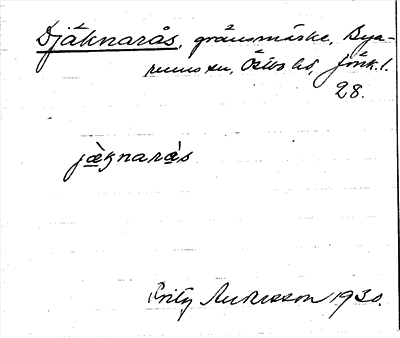 Djäknarås, gränsmärke, Bya-
rums sn, Östbo hd, Jönk.l.
28.
jäknarås
Fritz Andersson 1930.